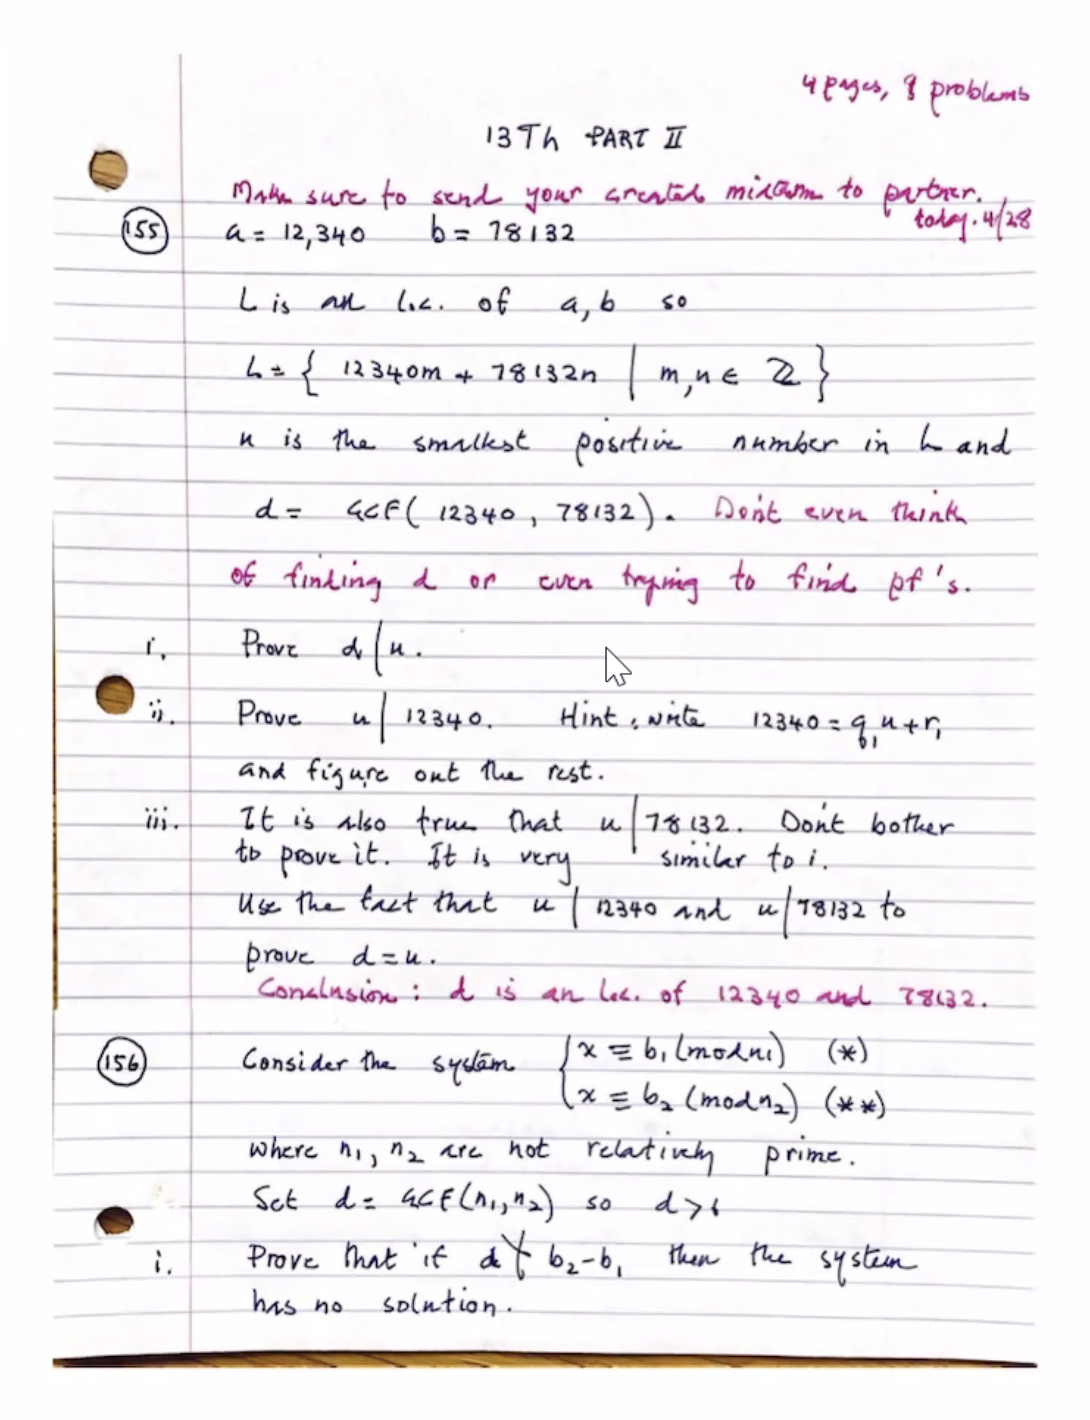 4 pages, 8 problems
13Th PART II
Make sure to send your created midterm to partner.
today. 4/28
155 a = 12,340 b = 78132
L is an l.c. of a, b so
L = { 12340m + 78132n | m,n ∈ ℤ }
u is the smallest positive number in L and
d = GCF( 12340, 78132). Don't even think
of finding d or even trying to find pf's.
i. Prove d | u.
ii. Prove u | 12340. Hint: write 12340 = q₁u + r₁
and figure out the rest.
iii. It is also true that u | 78132. Don't bother
to prove it. It is very similar to i.
Use the fact that u | 12340 and u | 78132 to
prove d = u.
Conclusion: d is an l.c. of 12340 and 78132.
156 Consider the system { x ≡ b₁ (mod n₁) (*)
x ≡ b₂ (mod n₂) (**)
where n₁, n₂ are not relatively prime.
Set d = GCF(n₁, n₂) so d > 1
i. Prove that if d ∤ b₂-b₁ then the system
has no solution.